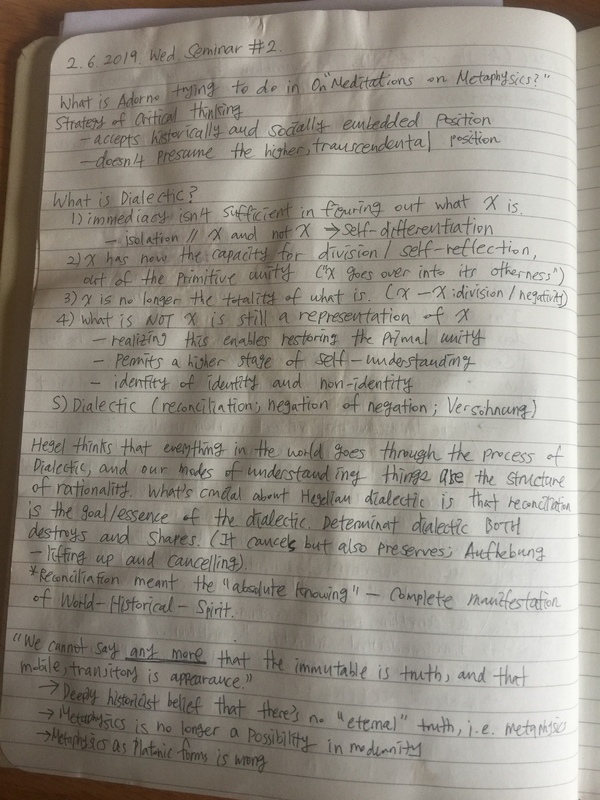 2.6.2019. Wed Seminar #2.
What is Adorno trying to do in On "Meditations on Metaphysics?"
Strategy of Critical thinking
- accepts historically and socially embedded position
- doesn't presume the higher, transcendental position
What is Dialectic?
1) immediacy isn't sufficient in figuring out what X is.
- isolation // X and not X → Self-differentiation
2) X has now the capacity for division / self-reflection,
out of the primitive unity ("X goes over into its otherness")
3) X is no longer the totality of what is. (X - X : division / negativity)
4) What is NOT X is still a representation of X
- realizing this enables restoring the primal unity
- permits a higher stage of self-understanding
- identity of identity and non-identity
5) Dialectic (reconciliation; negation of negation; Versohnung)
Hegel thinks that everything in the world goes through the process of
Dialectic, and our modes of understanding things are the structure
of rationality. What's crucial about Hegelian dialectic is that reconciliation
is the goal/essence of the dialectic. Determinat dialectic BOTH
destroys and shapes. (It cancels but also preserves; Aufhebung
- lifting up and cancelling).
*Reconciliation meant the "absolute knowing" - Complete manifestation
of World-Historical-Spirit.
"We cannot say any more that the immutable is truth, and that
mobile, transitory is appearance."
→ Deeply historicist belief that there's no "eternal" truth, i.e. metaphysics
→ Metaphysics is no longer a possibility in modernity
→ Metaphysics as Platonic forms is wrong